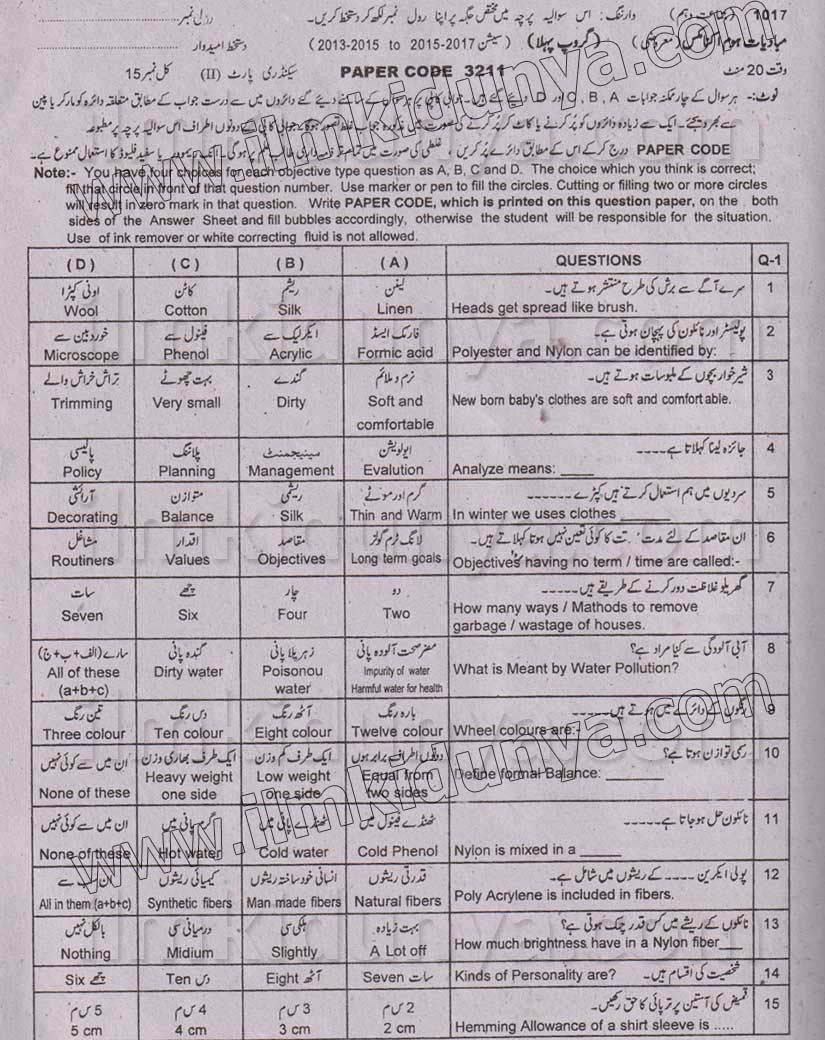 رول نمبر وارننگ :۔ اس سوالیہ پرچہ میں مختص جگہ پر اپنا رول نمبر لکھ کر دستخط کریں۔ (جماعت دہم) 1017
دستخط امیدوار (2013-2015 to 2015-2017 سیشن) (گروپ پہلا) (معروضی) مبادیات ہوم اکنامکس
کل نمبر 15 سیکنڈری پارٹ (II) PAPER CODE 3211 وقت 20 منٹ
نوٹ:۔ ہر سوال کے چار ممکنہ جوابات A , B , C اور D دیئے گئے ہیں۔ جوابی کاپی پر ہر سوال کے سامنے دیئے گئے دائروں میں سے درست جواب کے مطابق متعلقہ دائرہ کو مارکر یا پین
سے بھر دیجئے۔ ایک سے زیادہ دائروں کو پُر کرنے یا کاٹ کر پُر کرنے کی صورت میں مذکورہ جواب غلط تصور ہوگا۔ جوابی کاپی کے دونوں اطراف اس سوالیہ پرچہ پر مطبوعہ
PAPER CODE درج کر کے اس کے مطابق دائرے پُر کریں ، غلطی کی صورت میں تمام تر ذمہ داری طالب علم پر ہوگی۔ انک ریموور یا سفید فلیوڈ کا استعمال ممنوع ہے۔
Note:- You have four choices for each objective type question as A, B, C and D. The choice which you think is correct;
fill that circle in front of that question number. Use marker or pen to fill the circles. Cutting or filling two or more circles
will result in zero mark in that question. Write PAPER CODE, which is printed on this question paper, on the both
sides of the Answer Sheet and fill bubbles accordingly, otherwise the student will be responsible for the situation.
Use of ink remover or white correcting fluid is not allowed.
( D ) ( C ) ( B ) ( A ) QUESTIONS Q-1
اونی کپڑا کاٹن ریشم لینن سرے آگے سے برش کی طرح منتشر ہوتے ہیں۔ 1
Wool Cotton Silk Linen Heads get spread like brush.
خوردبین سے فینول سے ایکرلیک سے فارمک ایسڈ پولیسٹر اور نائلون کی پہچان ہوتی ہے۔ 2
Microscope Phenol Acrylic Formic acid Polyester and Nylon can be identified by:
تراش خراش والے بہت چھوٹے گندے نرم و ملائم شیر خوار بچوں کے ملبوسات ہوتے ہیں۔ 3
Trimming Very small Dirty Soft and comfortable New born baby's clothes are soft and comfortable.
پالیسی پلاننگ مینیجمنٹ ایولویشن جائزہ لینا کہلاتا ہے۔---- 4
Policy Planning Management Evalution Analyze means: ____
آرائشی متوازن ریشمی گرم اور موٹے سردیوں میں ہم استعمال کرتے ہیں کپڑے ------ 5
Decorating Balance Silk Thin and Warm In winter we uses clothes ______
مشاغل اقدار مقاصد لانگ ٹرم گولز ان مقاصد کے لئے مدت کا کوئی تعین نہیں ہوتا کہلاتے ہیں۔ 6
Routiners Values Objectives Long term goals Objectives having no term / time are called:-
سات چھے چار دو گھریلو غلاظت دور کرنے کے طریقے ہیں۔----- 7
Seven Six Four Two How many ways / Mathods to remove
garbage / wastage of houses.
سارے (الف+ب+ج) گندہ پانی زہریلا پانی مضر صحت آلودہ پانی آبی آلودگی سے کیا مراد ہے؟ 8
All of these (a+b+c) Dirty water Poisonou water Impurity of water Harmful water for health What is Meant by Water Pollution?
تین رنگ دس رنگ آٹھ رنگ بارہ رنگ رنگوں کے دائرے میں ہوتے ہیں۔----- 9
Three colour Ten colour Eight colour Twelve colour Wheel colours are:-
ان میں سے کوئی نہیں ایک طرف بھاری وزن ایک طرف کم وزن دونوں اطراف برابر ہوں رسمی توازن ہوتا ہے؟ 10
None of these Heavy weight one side Low weight one side Equal from two sides Define formal Balance: ________
ان میں سے کوئی نہیں گرم پانی میں ٹھنڈے پانی میں ٹھنڈے فینول میں نائلون حل ہو جاتا ہے۔----- 11
None of these Hot water Cold water Cold Phenol Nylon is mixed in a _____
ان سب سے کیمیائی ریشوں انسانی خود ساختہ ریشوں قدرتی ریشوں پولی ایکرین ---- کے ریشوں میں شامل ہے۔ 12
All in them (a+b+c) Synthetic fibers Man made fibers Natural fibers Poly Acrylene is included in fibers.
بالکل نہیں درمیانی سی ہلکی سی بہت زیادہ نائلون کے ریشے میں کس قدر چمک ہوتی ہے؟ 13
Nothing Midium Slightly A Lot off How much brightness have in a Nylon fiber___
Six چھے Ten دس Eight آٹھ Seven سات Kinds of Personality are? شخصیت کی اقسام ہیں۔ 14
5 س م 4 س م 3 س م 2 س م قمیض کی آستین پر ترپائی کا حق رکھیں۔ 15
5 cm 4 cm 3 cm 2 cm Hemming Allowance of a shirt sleeve is .....
www.ilmkidunya.com
www.ilmkidunya.com